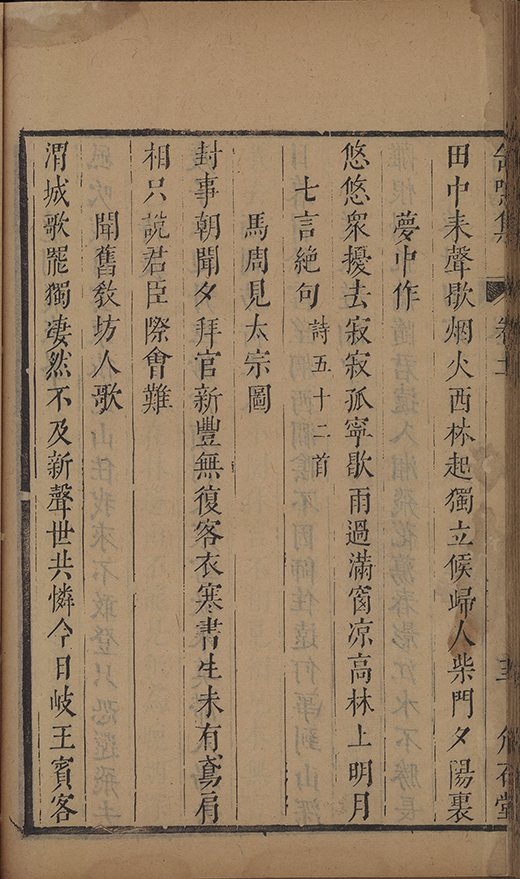 田中耒聲歇烟火西林起獨立候歸人柴門夕陽裏
夢中作
悠悠衆擾去寂寂孤寧歇雨過滿窗凉高林上明月
七言絕句 詩五十二首
馬周見太宗圖
封事朝聞夕拜官新豐無復客衣寒書生未有鳶肩
相只說君臣際會難
聞舊敎坊人歌
渭城歌罷獨淒然不及新聲世共憐今日岐王賓客